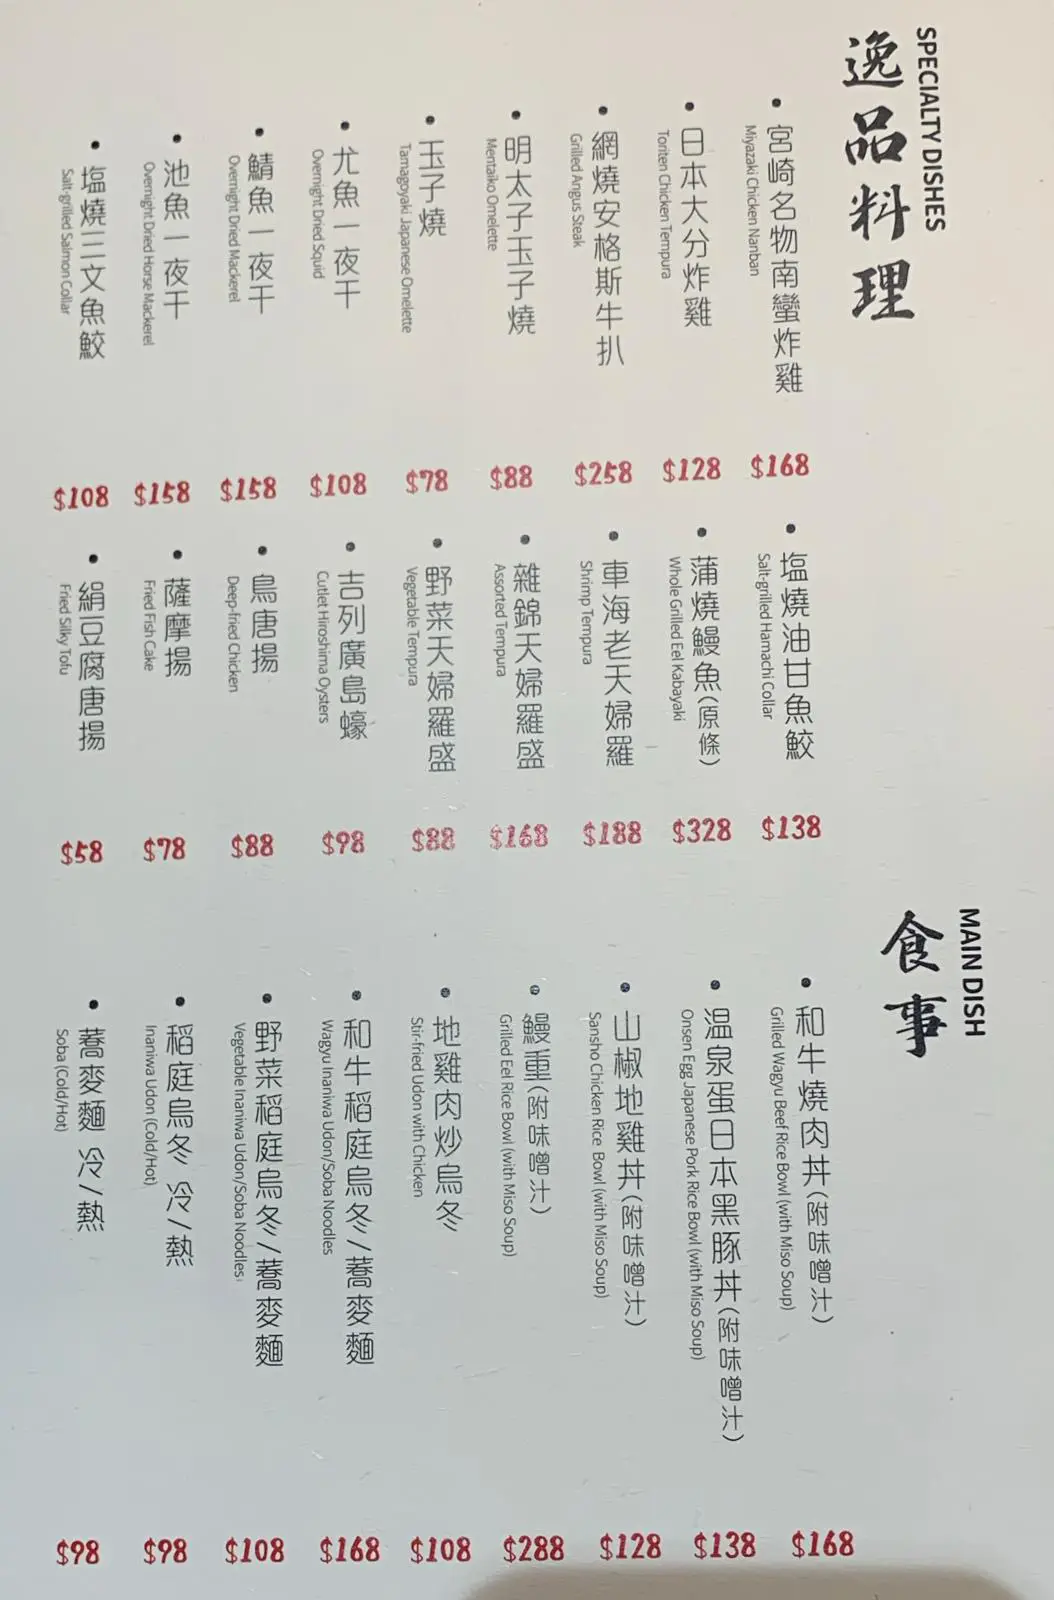 SPECIALTY DISHES
逸品料理
• 宮崎名物南蠻炸雞
Miyazaki Chicken Nanban
$168
• 日本大分炸雞
Toriten Chicken Tempura
$128
• 網燒安格斯牛扒
Grilled Angus Steak
$258
• 明太子玉子燒
Mentaiko Omelette
$88
• 玉子燒
Tamagoyaki Japanese Omelette
$78
• 尤魚一夜干
Overnight Dried Squid
$108
• 鯖魚一夜干
Overnight Dried Mackerel
$158
• 池魚一夜干
Overnight Dried Horse Mackerel
$158
• 塩燒三文魚鮫
Salt-grilled Salmon Collar
$108
• 塩燒油甘魚鮫
Salt-grilled Hamachi Collar
$138
• 蒲燒鰻魚(原條)
Whole Grilled Eel Kabayaki
$328
• 車海老天婦羅
Shrimp Tempura
$188
• 雜錦天婦羅盛
Assorted Tempura
$168
• 野菜天婦羅盛
Vegetable Tempura
$88
• 吉列廣島蠔
Cutlet Hiroshima Oysters
$98
• 鳥唐揚
Deep-fried Chicken
$88
• 薩摩揚
Fried Fish Cake
$78
• 絹豆腐唐揚
Fried Silky Tofu
$58
MAIN DISH
食事
• 和牛燒肉丼(附味噌汁)
Grilled Wagyu Beef Rice Bowl (with Miso Soup)
$168
• 溫泉蛋日本黑豚丼(附味噌汁)
Onsen Egg Japanese Pork Rice Bowl (with Miso Soup)
$138
• 山椒地雞丼(附味噌汁)
Sansho Chicken Rice Bowl (with Miso Soup)
$128
• 鰻重(附味噌汁)
Grilled Eel Rice Bowl (with Miso Soup)
$288
• 地雞肉炒烏冬
Stir-fried Udon with Chicken
$108
• 和牛稻庭烏冬/蕎麥麵
Wagyu Inaniwa Udon/Soba Noodles
$168
• 野菜稻庭烏冬/蕎麥麵
Vegetable Inaniwa Udon/Soba Noodles
$108
• 稻庭烏冬 冷/熱
Inaniwa Udon (Cold/Hot)
$98
• 蕎麥麵 冷/熱
Soba (Cold/Hot)
$98